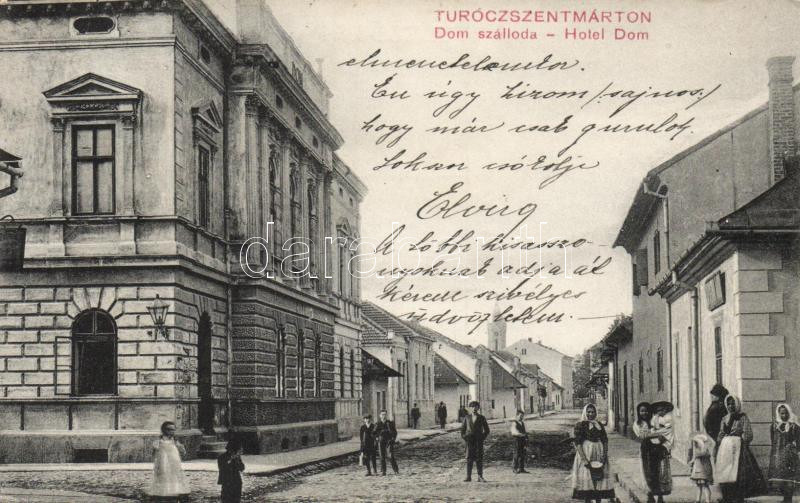 TURÓCZSZENTMÁRTON
Dom szálloda - Hotel Dom
Én úgy hizom /:sajnos:/
hogy már csak gurulok.
Sokszor csókolje
Elvira
A többi kisasszo-
nyoknak adja át
kérem szivélyes
üdvözletem.
darabanth.com